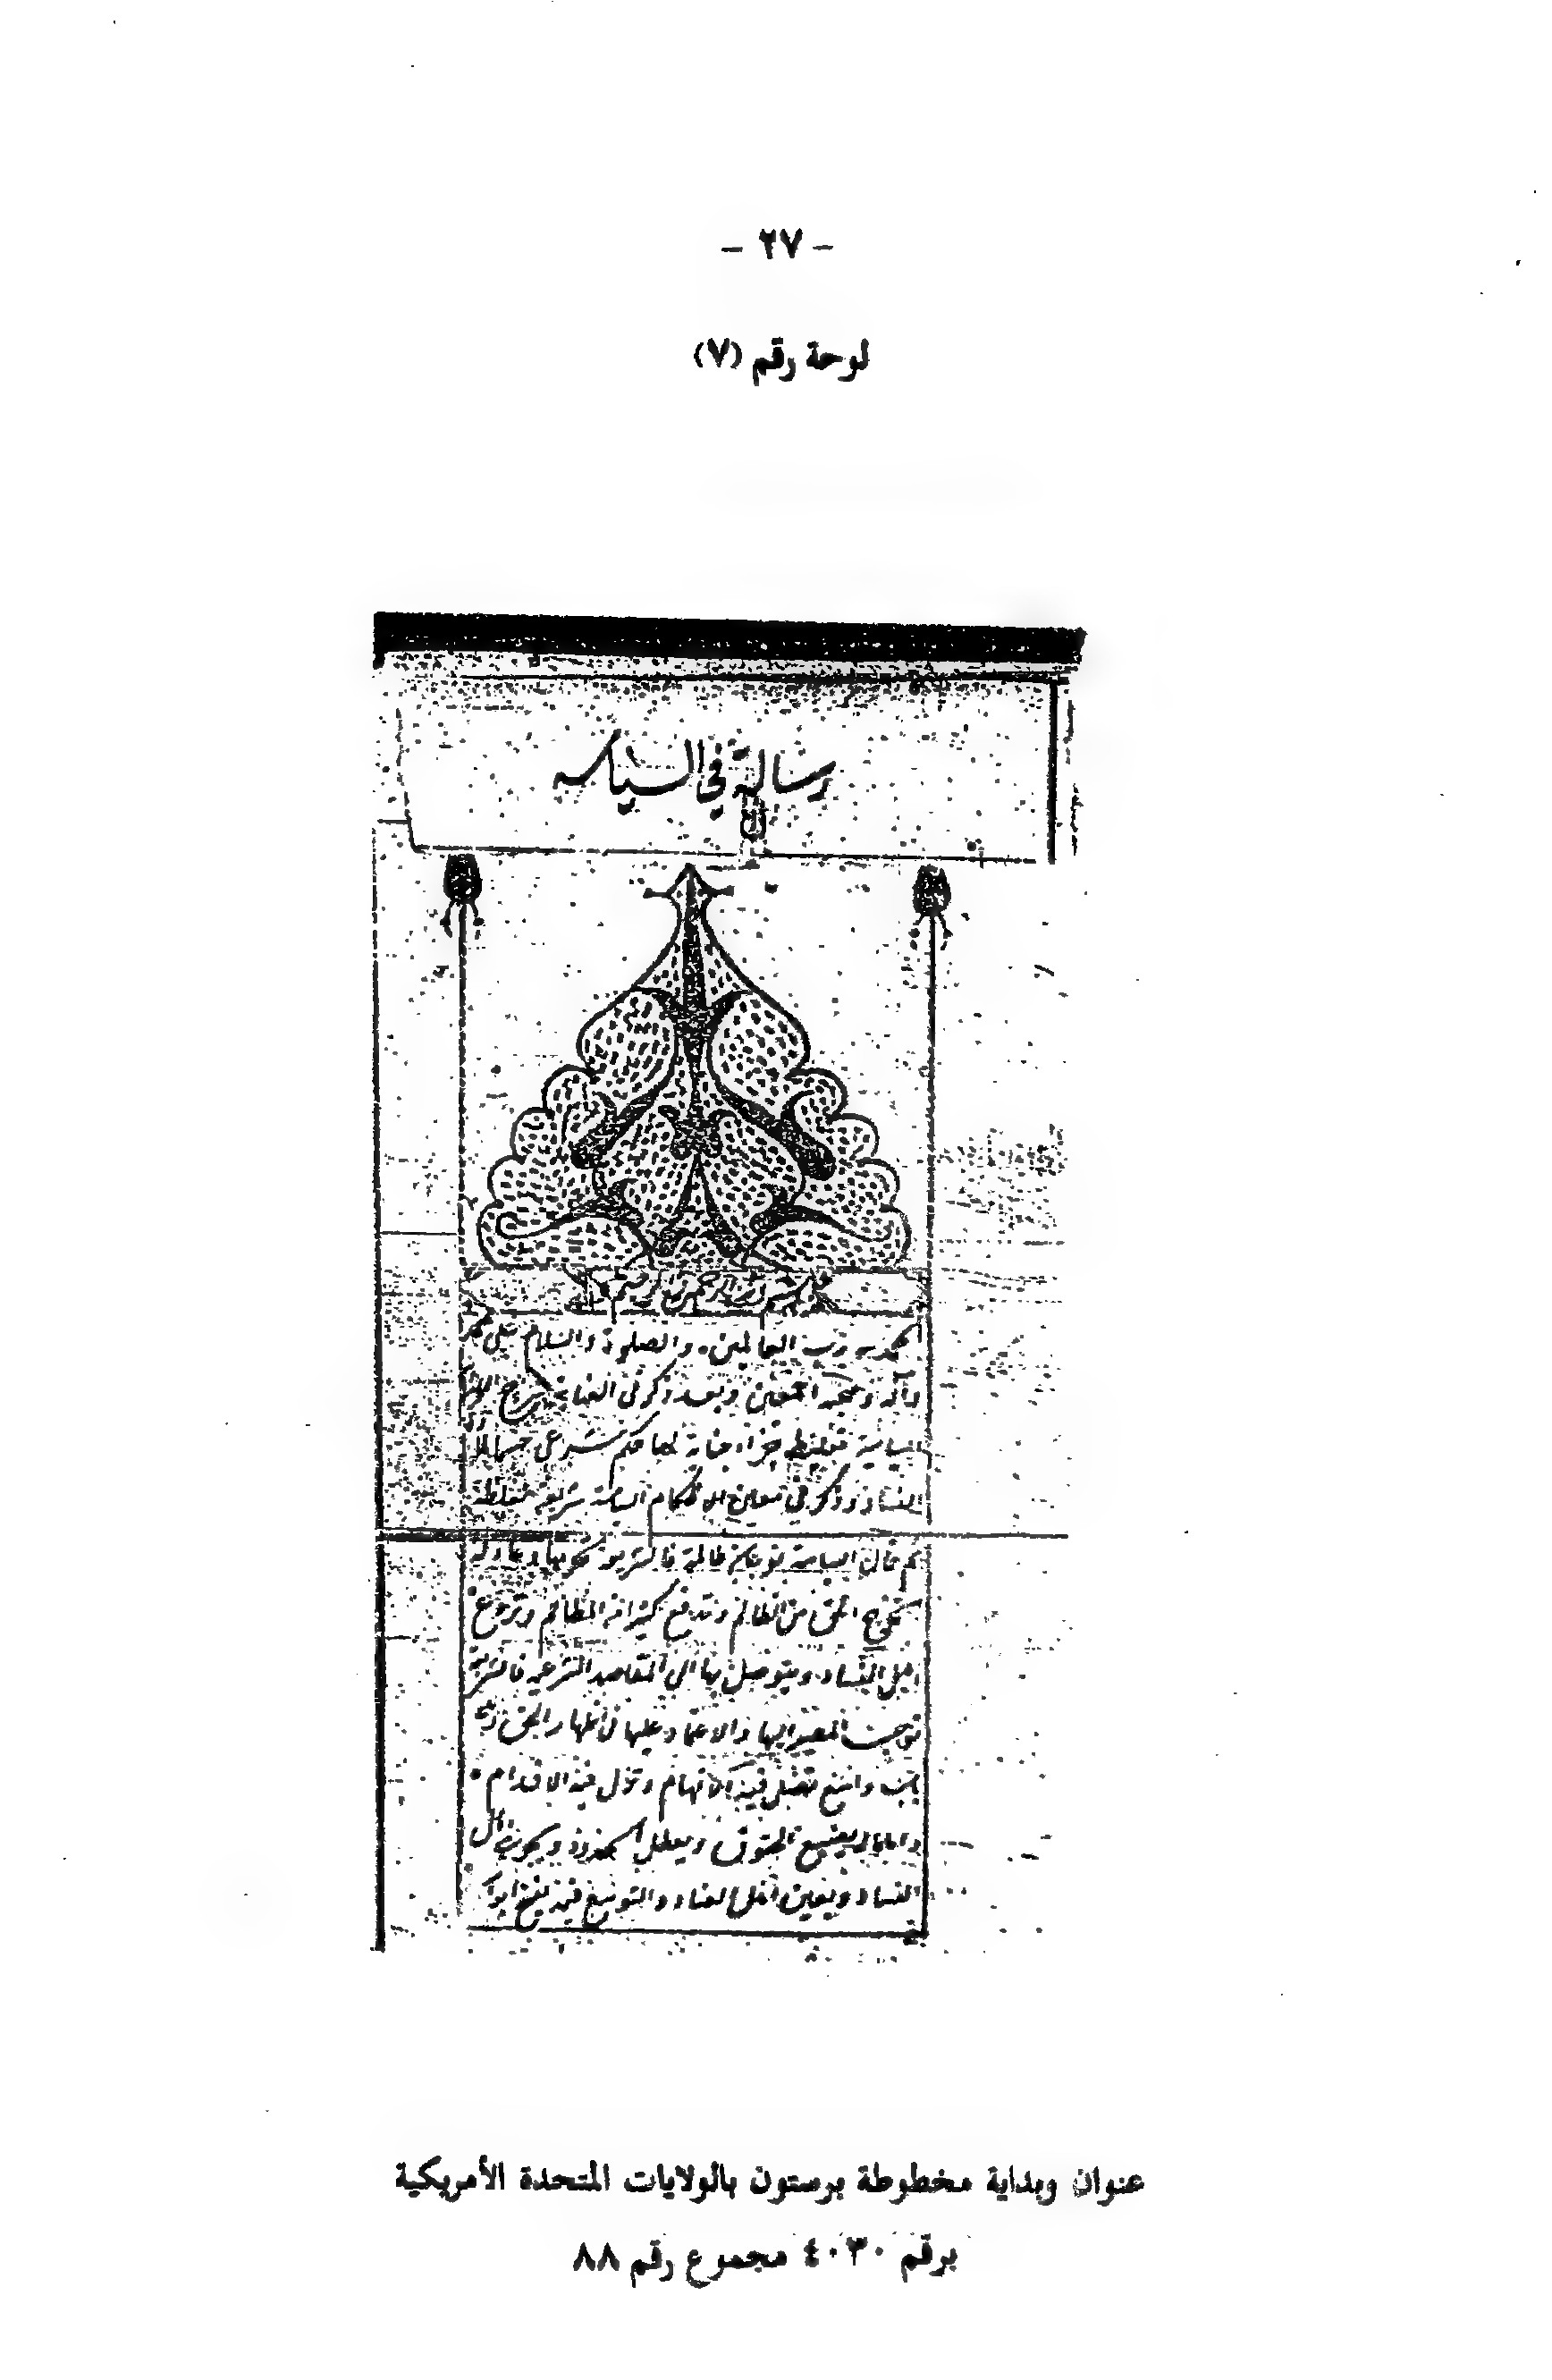 - ٢٧ -
لوحة رقم (٧)
رسالة في السياسه
بسم الله الرحمن الرحيم
الحمد لله رب العالمين والصلوة والسلام على محمد
وآله وصحبه اجمعين وبعد ذكر في العناية شرح الهداية
السياسة تغليظ جزاء جناية لها حكم شرعي حسما لمادة
الفساد وذكر في معين الاحكام السياسة شريعة مغلظة
ثم قال السياسة نوعان ظالمة فالشريعة وعادلة
تخرج الحق من الظالم وتدفع كثيرا من المظالم وتردع
اهل الفساد ويتوصل بها الى المقاصد الشرعية فالشريعة
توجب المصير اليها والاعتماد عليها في اظهار الحق
باب واسع تضل فيه الافهام وتزل فيه الاقدام
واهماله يضيع الحقوق ويعطل الحدود ويجرئ اهل
الفساد ويعين اهل العناد والتوسع فيه يفتح ابواب
عنوان وبداية مخطوطة برستون بالولايات المتحدة الأمريكية
برقم ٤٠٣٠ مجموع رقم ٨٨